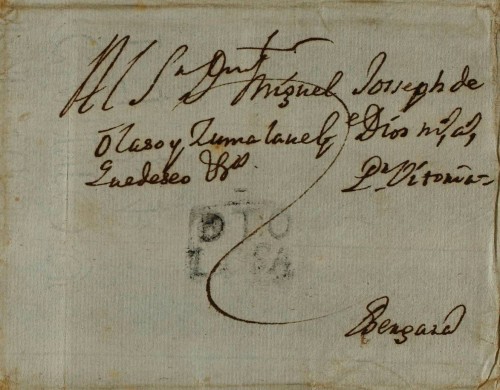 Al Sr Dn Miguel Joseph de
Olaso y Zumalaue q e Dios ms as
quedeseo Pr Vitoria
D TO
LOSA
Bergara